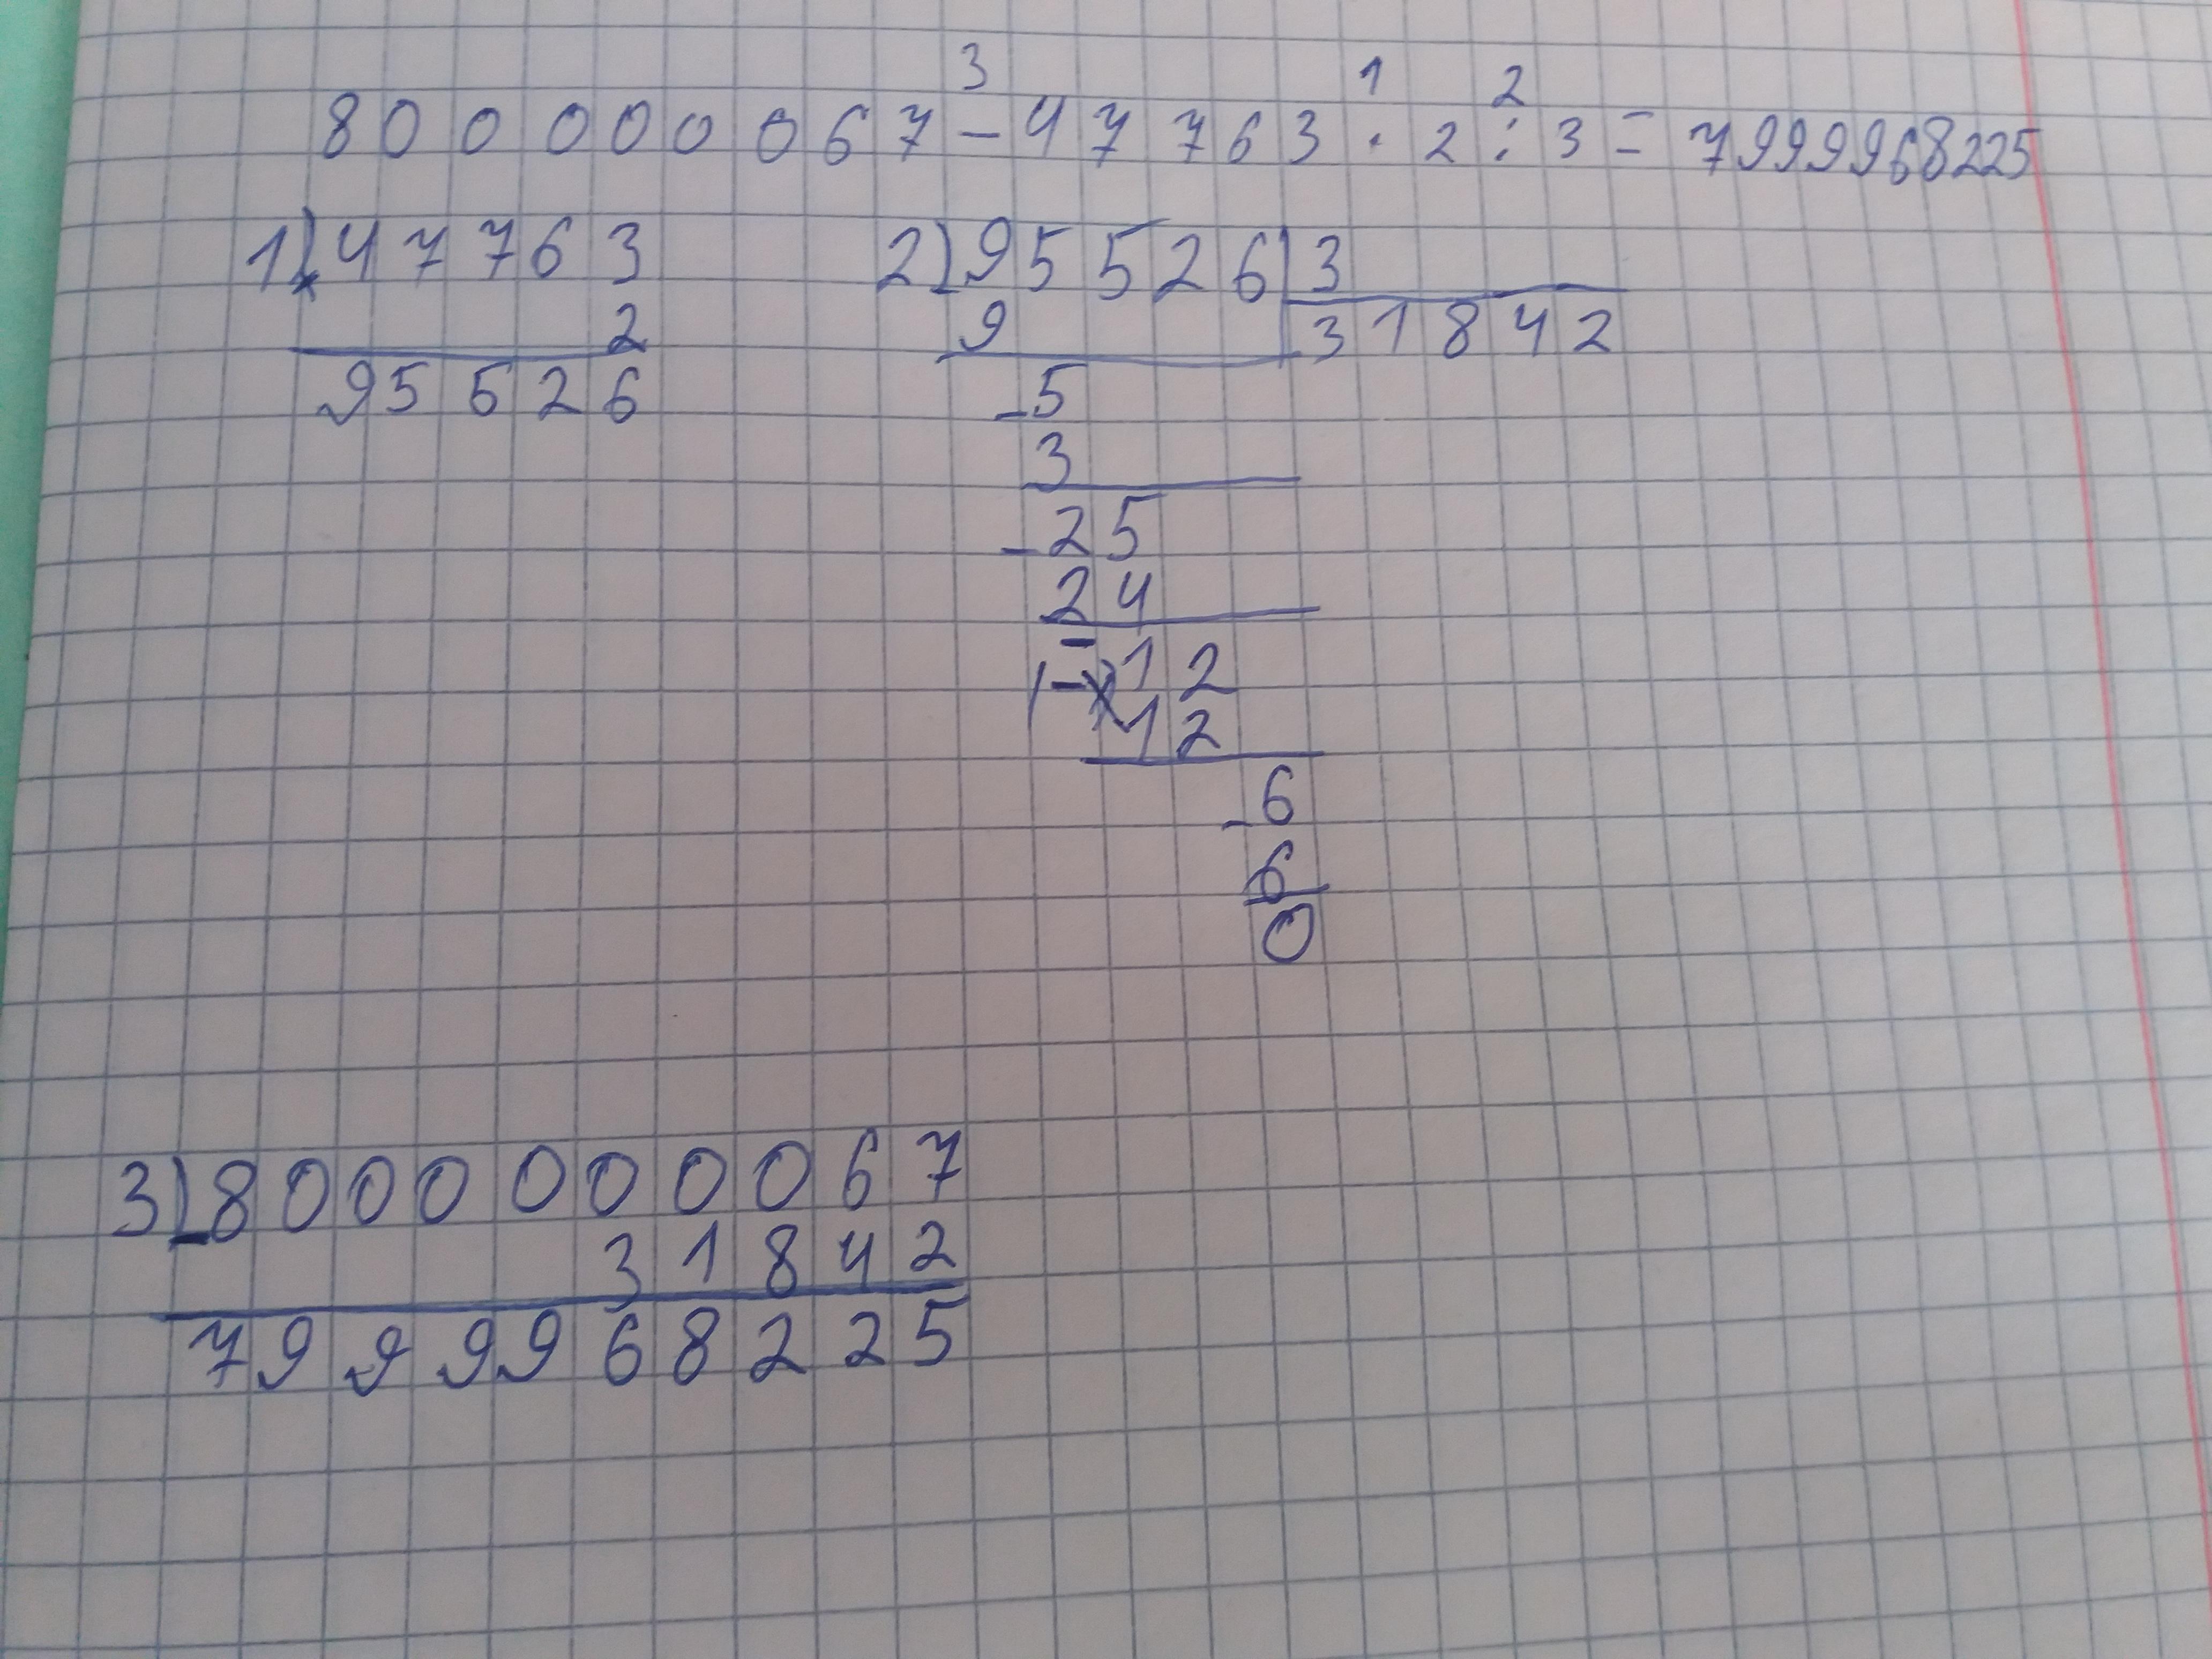 3 1 2
800000067 - 47763 · 2 : 3 = 7999968225
1) 47763
× 2
95526
2) 95526 | 3
- 9 31842
- 5
3
- 25
24
- 12
12
- 6
6
0
3) - 8000000067
31842
7999968225